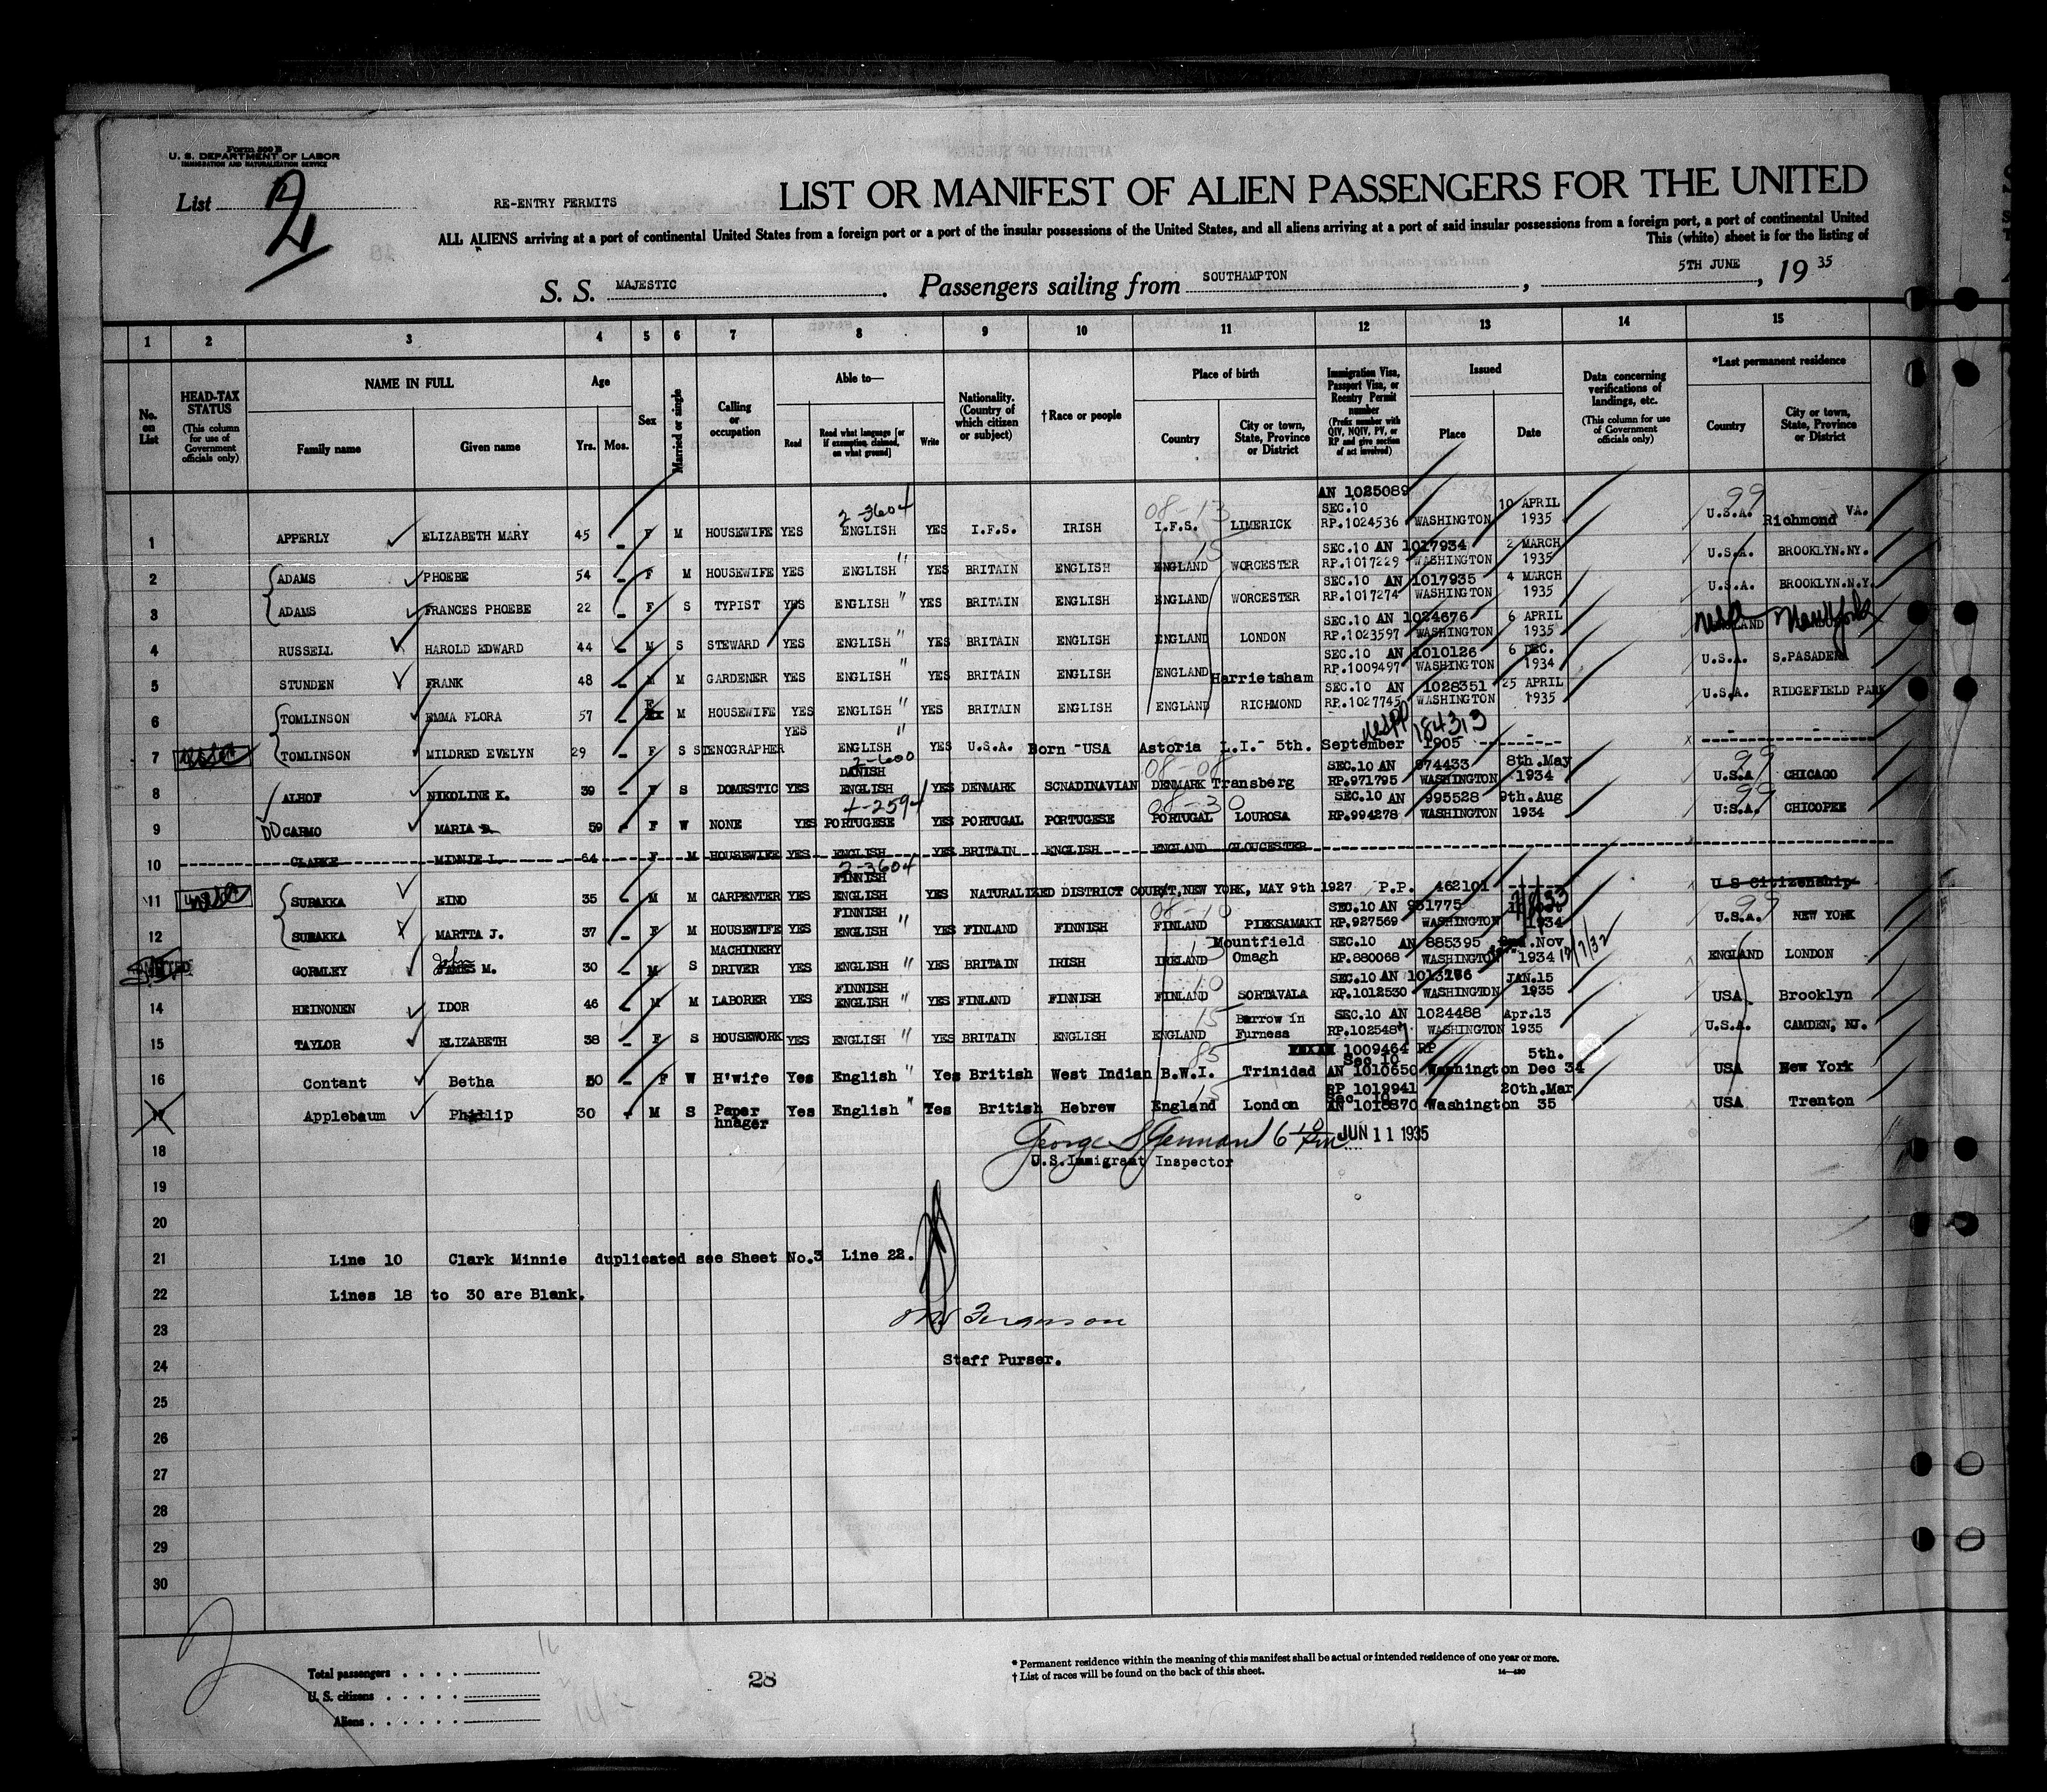 Form 500 B
U. S. DEPARTMENT OF LABOR
IMMIGRATION AND NATURALIZATION SERVICE
List 2
RE-ENTRY PERMITS
LIST OR MANIFEST OF ALIEN PASSENGERS FOR THE UNITED
ALL ALIENS arriving at a port of continental United States from a foreign port or a port of the insular possessions of the United States, and all aliens arriving at a port of said insular possessions from a foreign port, a port of continental United
This (white) sheet is for the listing of
S. S. MAJESTIC. Passengers sailing from SOUTHAMPTON, 5TH JUNE, 19 35
1 2 3 4 5 6 7 8 9 10 11 12 13 14 15
No. on List
HEAD-TAX STATUS (This column for use of Government officials only)
NAME IN FULL
Family name
Given name
Age
Yrs. Mos.
Sex
Married or single
Calling or occupation
Able to—
Read
Read what language [or if exemption claimed, on what ground]
Write
Nationality. (Country of which citizen or subject)
† Race or people
Place of birth
Country
City or town, State, Province or District
Immigration Visa, Passport Visa, or Reentry Permit number (Prefix number with QIV, NQIV, PV, or RP and give section of act involved)
Issued
Place
Date
Data concerning verifications of landings, etc. (This column for use of Government officials only)
*Last permanent residence
Country
City or town, State, Province or District
1 APPERLY ELIZABETH MARY 45 F M HOUSEWIFE YES 2-3604 ENGLISH YES I.F.S. IRISH 08-13 I.F.S. LIMERICK AN 1025089 SEC.10 RP.1024536 WASHINGTON 10 APRIL 1935 99 U.S.A. Richmond VA.
2 ADAMS PHOEBE 54 F M HOUSEWIFE YES ENGLISH " YES BRITAIN ENGLISH 15 ENGLAND WORCESTER SEC.10 AN 1017934 RP.1017229 WASHINGTON 2 MARCH 1935 U.S.A. BROOKLYN.NY.
3 ADAMS FRANCES PHOEBE 22 F S TYPIST YES ENGLISH " YES BRITAIN ENGLISH ENGLAND WORCESTER SEC.10 AN 1017935 RP.1017274 WASHINGTON 4 MARCH 1935 U.S.A. BROOKLYN.N.Y.
4 RUSSELL HAROLD EDWARD 44 M S STEWARD YES ENGLISH " YES BRITAIN ENGLISH ENGLAND LONDON SEC.10 AN 1024676 RP.1023597 WASHINGTON 6 APRIL 1935 New York
5 STUNDEN FRANK 48 M M GARDENER YES ENGLISH " YES BRITAIN ENGLISH ENGLAND Harrietsham SEC.10 AN 1010126 RP.1009497 WASHINGTON 6 DEC. 1934 U.S.A. S.PASADENA
6 TOMLINSON EMMA FLORA 57 F M HOUSEWIFE YES ENGLISH " YES BRITAIN ENGLISH ENGLAND RICHMOND SEC.10 AN 1028351 RP.1027745 WASHINGTON 25 APRIL 1935 U.S.A. RIDGEFIELD PARK
7 TOMLINSON MILDRED EVELYN 29 F S STENOGRAPHER YES ENGLISH " YES U.S.A. Born USA Astoria L.I. 5th. September 1905 USPP 184313
8 ALHOF NIKOLINE K. 39 F S DOMESTIC YES 2-600 DANISH ENGLISH YES DENMARK SCNADINAVIAN 08-08 DENMARK Transberg SEC.10 AN 974433 RP.971795 WASHINGTON 8th.May 1934 99 U.S.A CHICAGO
9 DO CARMO MARIA D. 59 F W NONE YES 4-2594 PORTUGESE YES PORTUGAL PORTUGESE 08-30 PORTUGAL LOUROSA SEC.10 AN 995528 RP.994278 WASHINGTON 9th.Aug 1934 99 U.S.A. CHICOPEE
10 CLARKE MINNIE L. 64 F M HOUSEWIFE YES ENGLISH YES BRITAIN ENGLISH ENGLAND GLOUCESTER
11 SUPAKKA EINO 35 M M CARPENTER YES 2-3604 FINNISH ENGLISH YES NATURALIZED DISTRICT COURT, NEW YORK, MAY 9th 1927 P.P. 462101 U S Citizenship
12 SUPAKKA MARTTA J. 37 F M HOUSEWIFE YES FINNISH ENGLISH " YES FINLAND FINNISH 08-10 FINLAND PIEKSAMAKI SEC.10 AN 931775 RP.927569 WASHINGTON 1934 99 U.S.A. NEW YORK
GORMLEY John JAMES M. 30 M S MACHINERY DRIVER YES ENGLISH " YES BRITAIN IRISH 13 IRELAND Mountfield Omagh SEC.10 AN 885395 RP.880068 WASHINGTON 2nd.Nov 1934 ENGLAND LONDON
14 HEINONEN IDOR 46 M M LABORER YES FINNISH ENGLISH " YES FINLAND FINNISH 10 FINLAND SORTAVALA SEC.10 AN RP.1012530 WASHINGTON JAN.15 1935 USA Brooklyn
15 TAYLOR ELIZABETH 38 F S HOUSEWORK YES ENGLISH " YES BRITAIN ENGLISH 15 ENGLAND Barrow in Furness SEC.10 AN 1024488 RP.102548 WASHINGTON Apr.13 1935 U.S.A. CAMDEN, NJ.
16 Contant Betha 50 F W H'wife Yes English " Yes British West Indian 85 B.W.I. Trinidad 1009464 RP Sec 10 AN 1010650 Washington 5th. Dec 34 USA New York
17 Applebaum Phillip 30 M S Paper hnager Yes English " Yes British Hebrew 15 England London RP 1019941 Sec 10 AN 1018870 Washington 20th.Mar 35 USA Trenton
18 George S Jannan 6 10 Pm JUN 11 1935
U.S.Immigrant Inspector
19
20
21 Line 10 Clark Minnie duplicated see Sheet No.3 Line 22.
22 Lines 18 to 30 are Blank.
23 Ferguson
24 Staff Purser.
25
26
27
28
29
30
Total passengers . . . .
U. S. citizens . . . . .
Aliens . . . . . .
28
* Permanent residence within the meaning of this manifest shall be actual or intended residence of one year or more.
† List of races will be found on the back of this sheet.
14—430